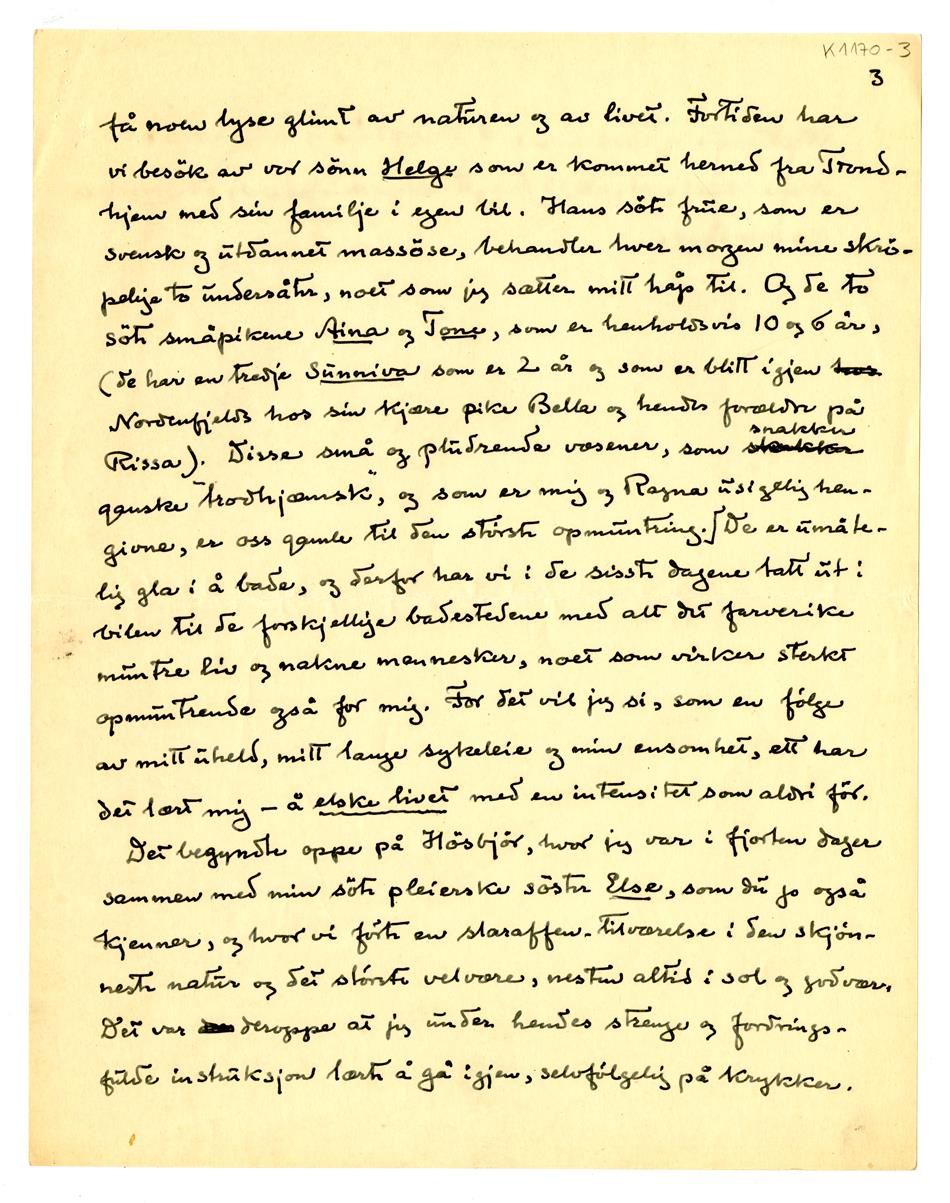 K1170-3
3
få noen lyse glimt av naturen og av livet. Fortiden har
vi besök av vor sönn Helge som er kommet herned fra Trond-
hjem med sin familje i egen bil. Hans söte frue, som er
svensk og utdannet massöse, behandler hver morgen mine skrö-
pelige to undersåtter, noet som jeg sætter mitt håp til. Og de to
söte småpikene Aina og Tone, som er henholdsvis 10 og 6 år,
(de har en tredje Sunniva som er 2 år og som er blitt igjen hos
Nordenfjelds hos sin kjære pike Bella og hendes forældre på
Rissa). Disse små og pludrende væsener, som snakker
ganske "trodhjæmsk", og som er mig og Ragna usigelig hen-
givne, er oss gamle til den störste opmuntring. De er umåte-
lig gla i å bade, og derfor har vi i de sisste dagene tatt ut i
bilen til de forskjellige badestedene med alt det farverike
muntre liv og nakne mennesker, noet som virker sterkt
opmuntrende også for mig. For det vil jeg si, som en fölge
av mitt uheld, mitt lange sykeleie og min ensomhet, ett har
det lært mig – å elske livet med en intensitet som aldri för.
Det begyndte oppe på Hösbjör, hvor jeg var i fjorten dager
sammen med min söte pleierske söster Else, som du jo også
kjenner, og hvor vi förte en slaraffen-tilværelse i den skjön-
neste natur og det störste velvære, nesten altid i sol og godvær.
Det var deroppe at jeg under hendes strenge og fordrings-
fulde instruksjon lærte å gå igjen, selvfölgelig på krykker.